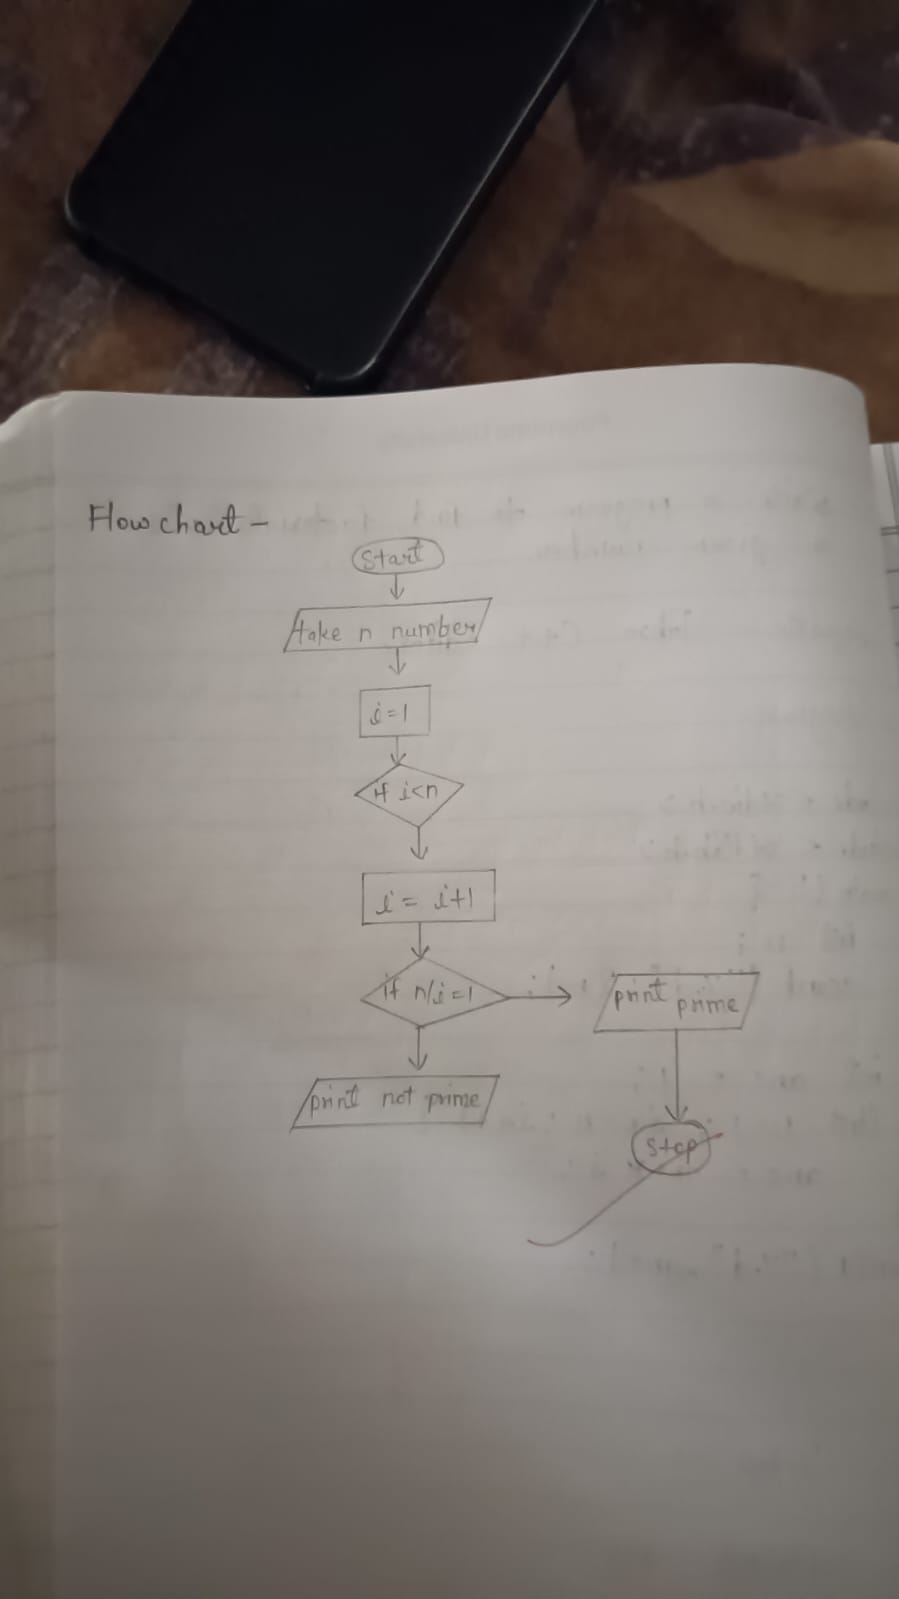 Flow chart -
Start
take n number
i=1
if i<n
i = i+1
if n/i=1
print prime
print not prime
Stop